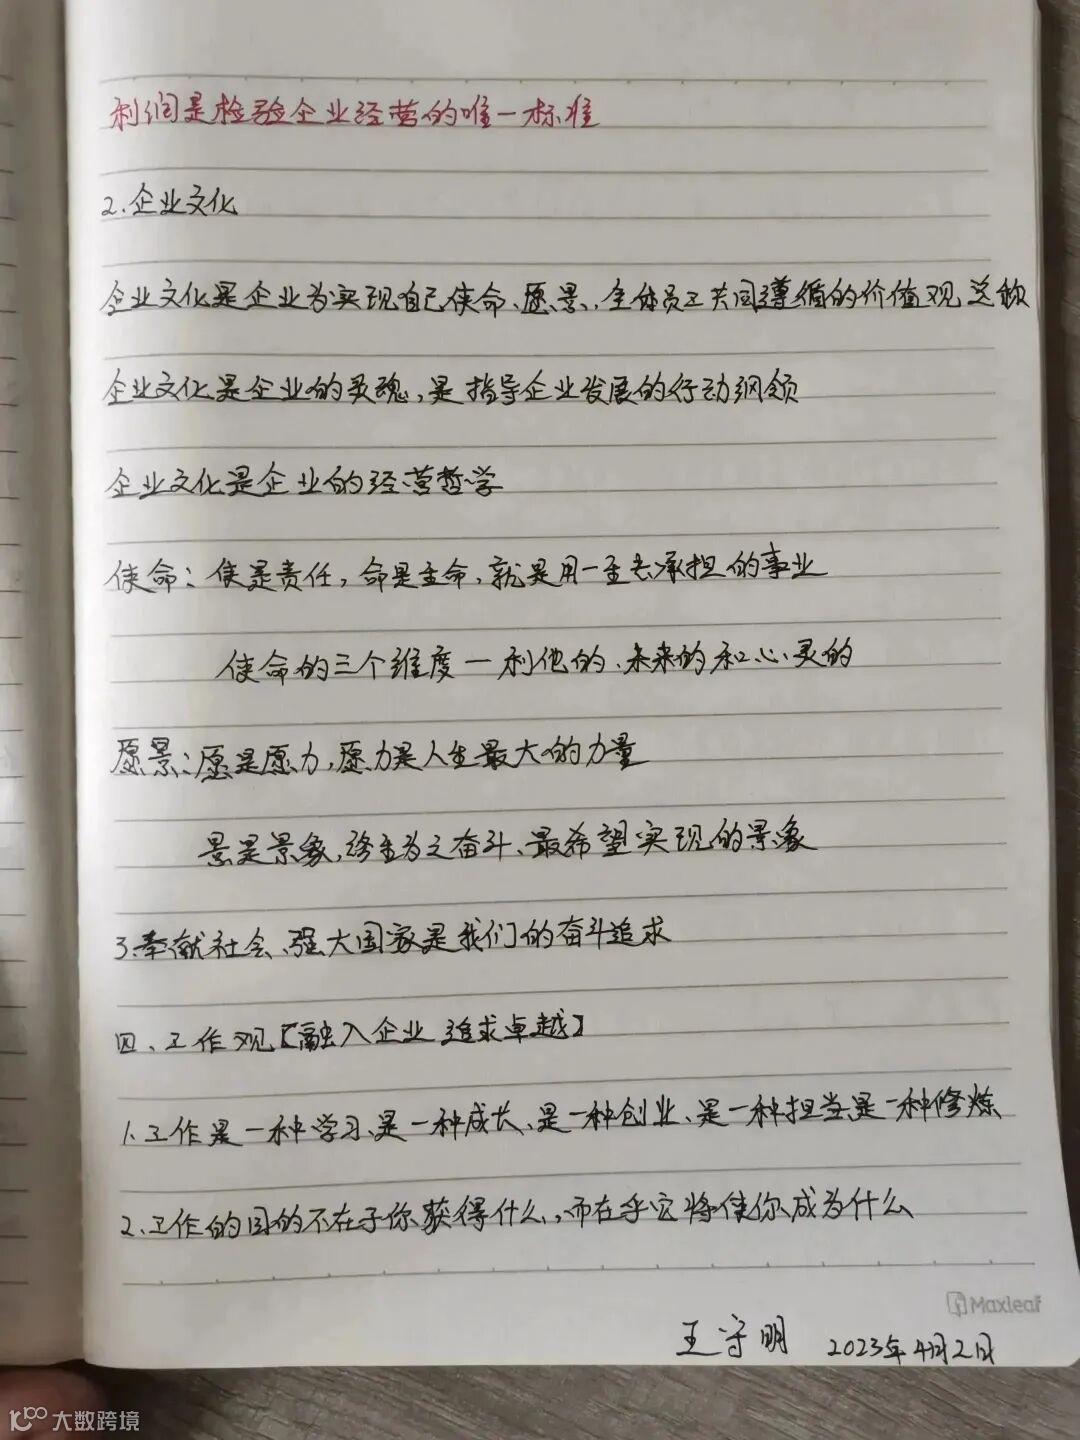 利润是检验企业经营的唯一标准
2.企业文化
企业文化是企业为实现自己使命、愿景,全体员工共同遵循的价值观总称
企业文化是企业的灵魂,是指导企业发展的行动纲领
企业文化是企业的经营哲学
使命:使是责任,命是生命,就是用一生去承担的事业
使命的三个维度一利他的、未来的和心灵的
愿景:愿是愿力,愿力是人生最大的力量
景是景象,终生为之奋斗、最希望实现的景象
3.奉献社会、强大国家是我们的奋斗追求
四、工作观【融入企业 追求卓越】
1.工作是一种学习、是一种成长、是一种创业、是一种担当、是一种修炼
2.工作的目的不在于你获得什么,而在乎它将使你成为什么
Maxleaf
王守明 2023年4月2日
大数跨境